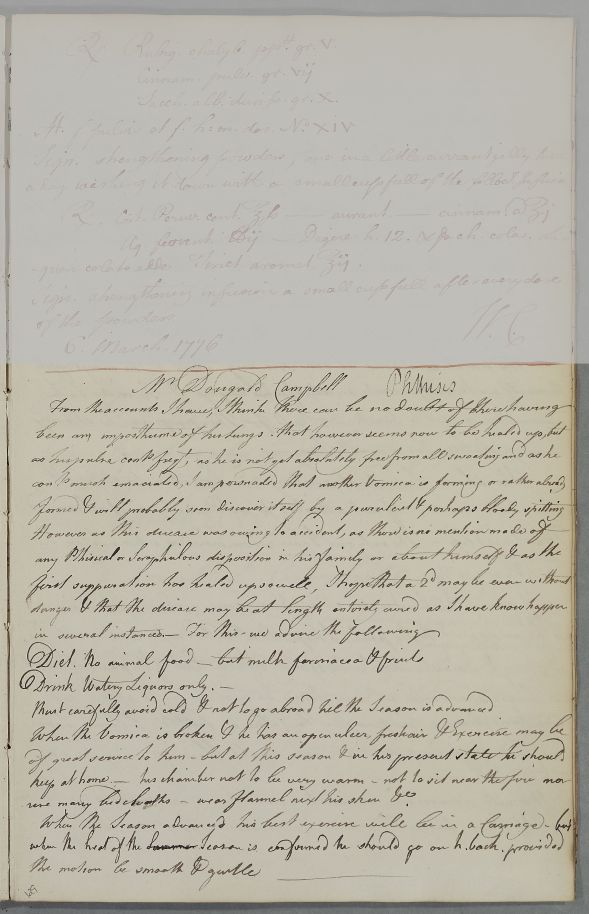 ℞ Rubig. chalyb. ppt. gr. V
Cinnam. pulv. gr. vij
Sacch. alb. gr. X.
M. f. pulvis No. XIV
Sign. strengthening powders, one in a little currant jelly
a day washing it down with a small cup full of the
℞ Cort. Peruv. cont. ℥ß — aurant. — cinnam. @ ʒj
Aq. fervent. ℔ij — Digere h. 12. & colat.
colat. adde Tinct. aromat. ℥ij.
Sign. strengthening infusion a small cup full after every dose
of the powders W. C.
6. March. 1776
Mr Dougald Campbell Phthisis
From the accounts I have, I think there can be no doubt of there having
been an imposthume of his lungs. that however seems now to be healed up, but
as his pulse conts. freqt., as he is not yet absolutely free from all sweating and as he
conts. much emaciated, I am perswaded that another Vomica is forming or rather already
formed & will probably soon discover itself by a purulent & perhaps bloody spitting
However as this disease was owing to accident, as there is no mention made of
any Phthisical or Scrophulous disposition in his family or about himself & as the
first suppuration has healed up so well, I hope that a 2d may be even without
danger & that the disease may be at length entirely cured as I have know happen
in several instances — For this we advise the following
Diet. No animal food — but milk farinacea & fruits
Drink Watery Liquors only. —
Must carefully avoid cold & not to go abroad till the Season is advanced
When the Vomica is broken & he has an open ulcer, fresh air & Exercise may be
of great service to him — but at this season & in his present state he should
keep at home — his chamber not to be very warm — not to sit near the fire nor
many bedcloaths — wear flannel next his skin &c
When the Season advances his best exercise will be in a Carriage — but
when the heat of the Season is confirmed he should go on h. back, provided
the motion be smooth & gentle